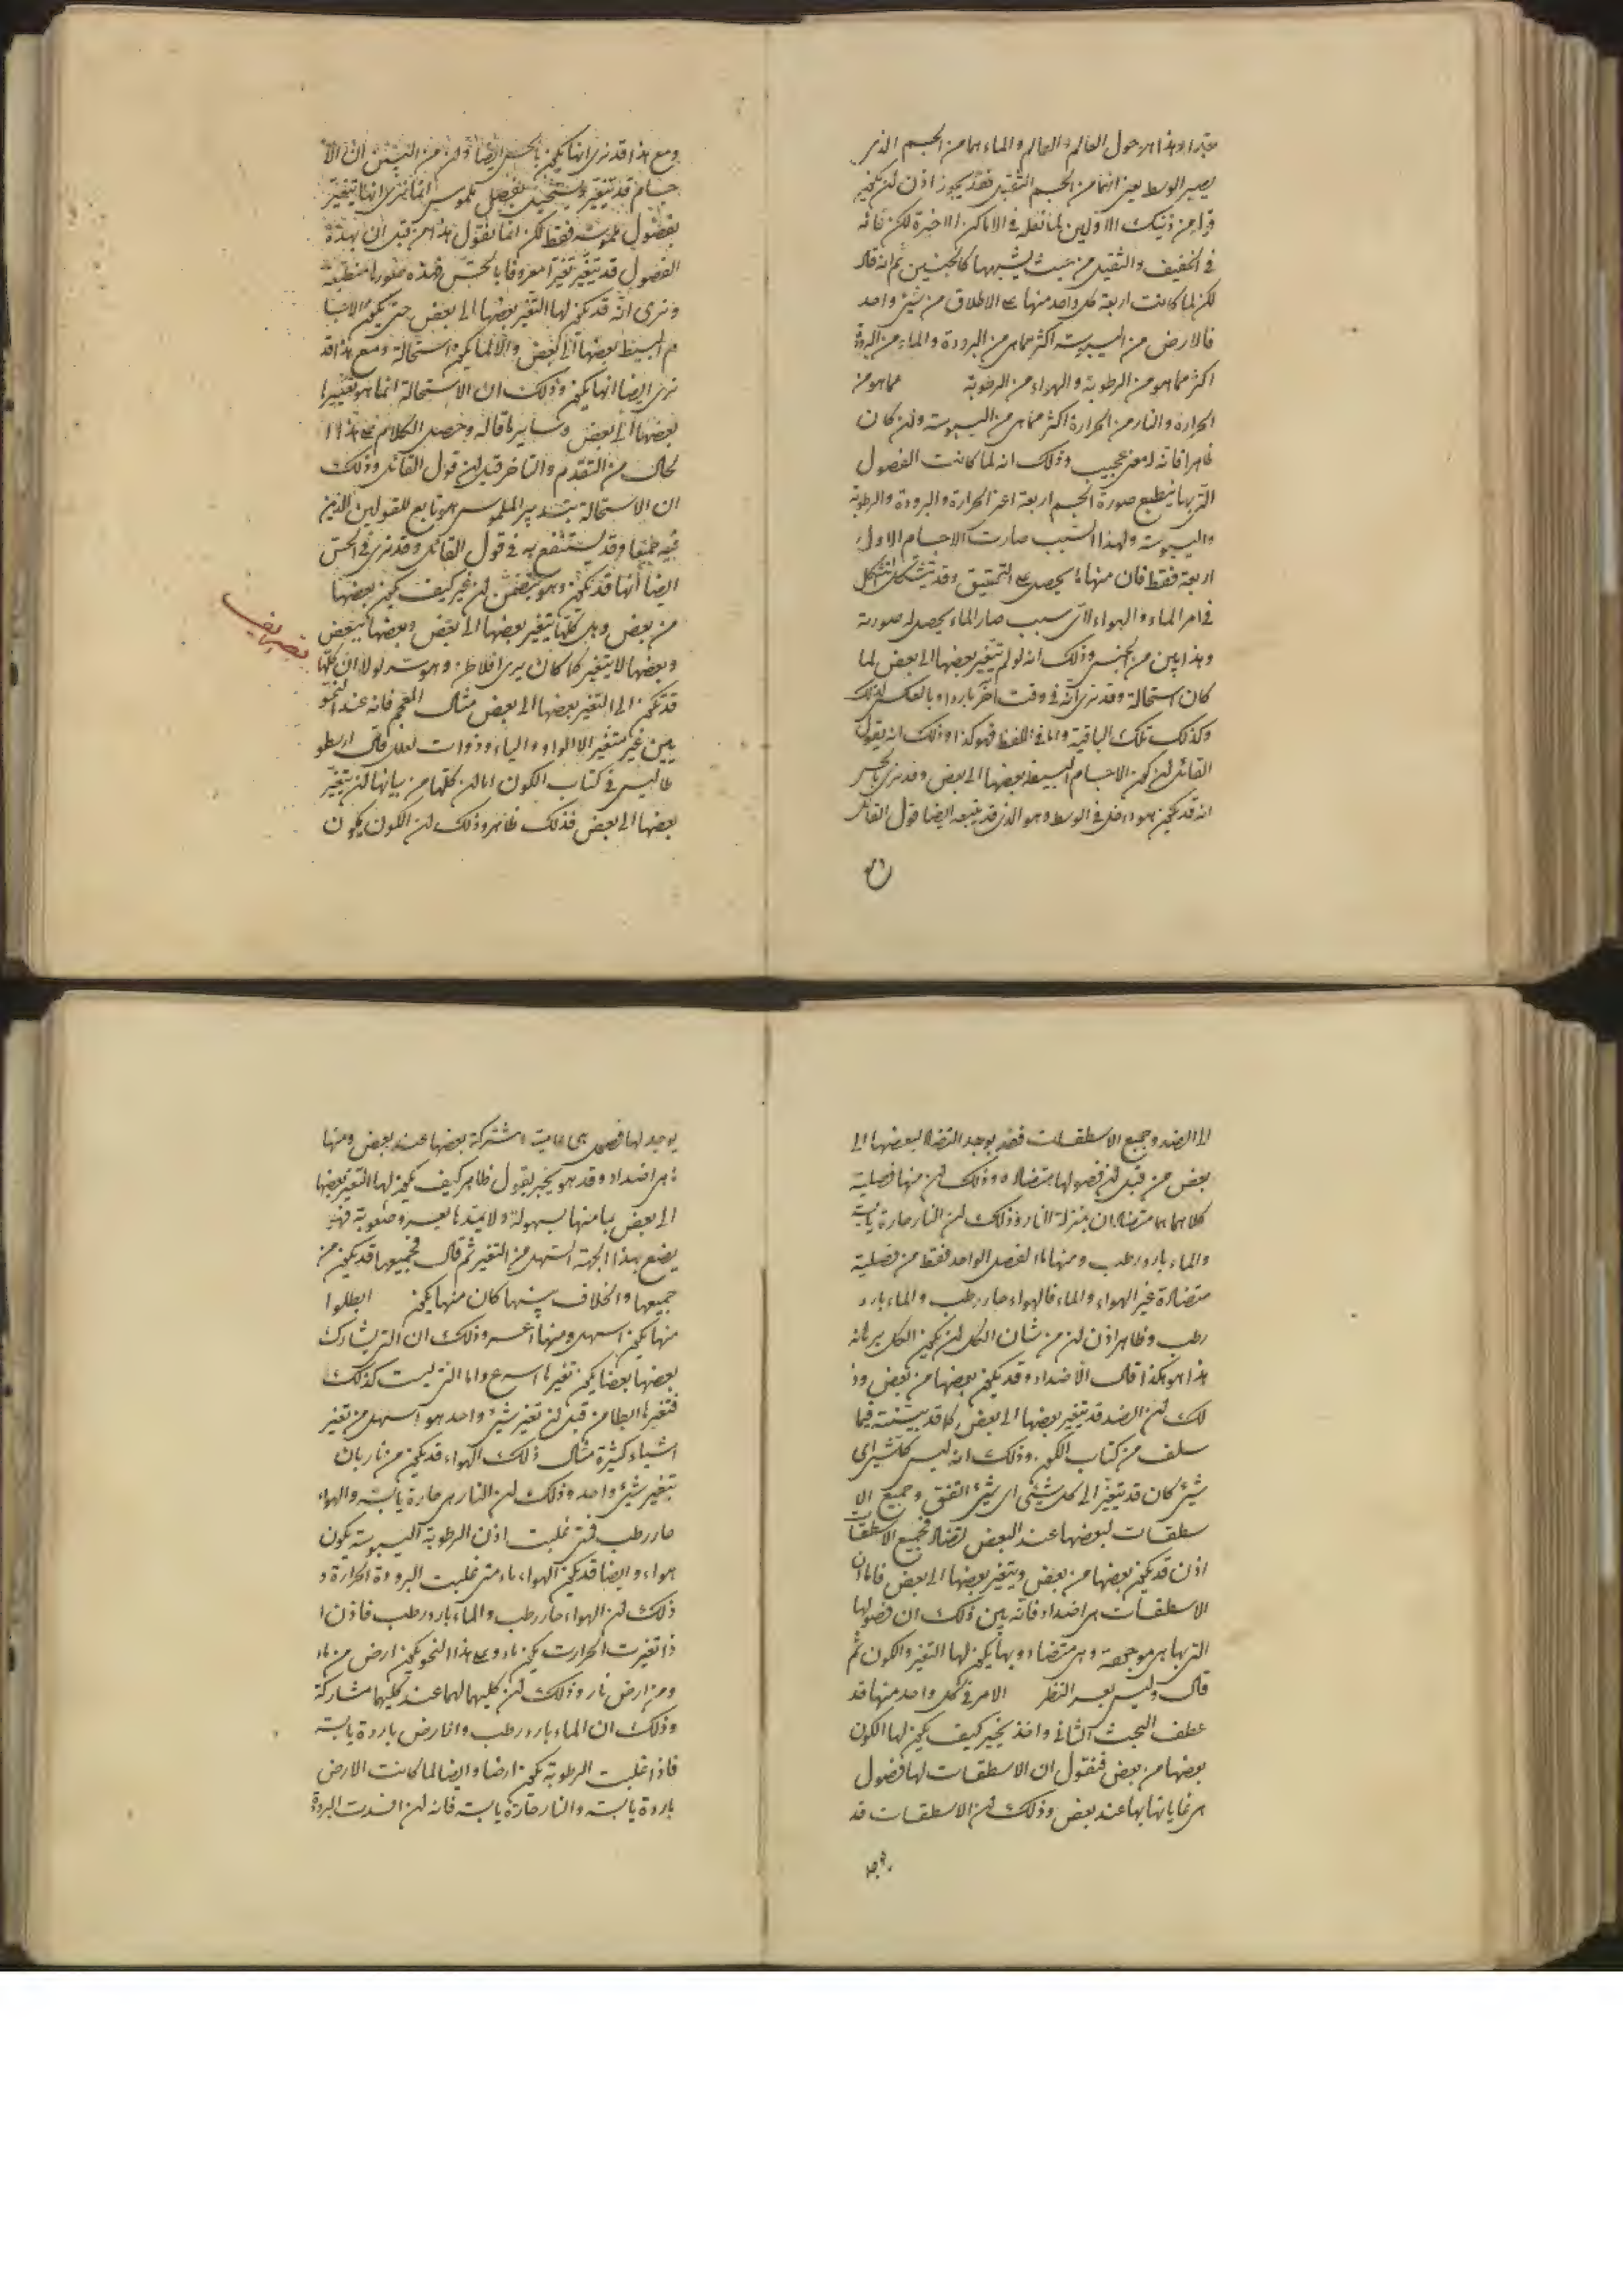 وهذا هو حول العالم والعالم والماء هما من الجسم الذي
يصير الوسط يعني انهما من الجسم الثقيل فقد يجوز اذن لن يكون
من ذينك الاولين لما نقله في الاماكن الاخيرة لكن فانه
في الخفيف والثقيل من حيث يشبهها كالجنسين ثم انه قال
لكن لما كانت اربعة كل واحد منها على الاطلاق من شيء واحد
فالارض من اليبوسة اكثر مما هي من البرودة والماء من البرودة
اكثر مما هو من الرطوبة والهواء من الرطوبة مما هو من
الحرارة والنار من الحرارة اكثر مما هي من اليبوسة ولن كان
ظاهرا فانه لمعنى عجيب وذلك انه لما كانت الفصول
التي بها ينطبع صورة الجسم اربعة اعني الحرارة والبرودة والرطوبة
واليبوسة ولهذا السبب صارت الاجسام الاول
اربعة فقط فان منها يحصل على التحقيق وقد يتشكك
في امر الماء والهواء لاي سبب صار الماء يحصل له صورته
وهذا بين من الجنس وذلك انه لو لم يتغير بعضها الى بعض لما
كان استحالة وقد نرى انه في وقت آخر باردا وبالعكس لذلك
وكذلك تلك الباقية واما في اللفظ فهو كذا وذلك انه يقول
القائل لن كون الاجسام البسيطة بعضها الى بعض وقد نرى بالحس
انه قد يكون هو داخل في الوسط وهو الذي قد يتبعه ايضا قول القائل
ومع هذا قد نرى انها يكون بالحس ايضا ولن من البين ان الا
جسام قد تتغير وتستحيل بفصل ملموس انما نرى انها يتغير
بفصول ملموسة فقط لكن انما نقول هذا من قبل ان بهذه
الفصول قد يتغير تغيرا معروفا بالحس وهذه صورا منطبعة
ونرى انه قد يكون لها التغير بعضها الى بعض حتى يكون الاجسا
م البسيط بعضها الى بعض والا لما يكون استحالة ومع هذا قد
نرى ايضا انها يكون وذلك ان الاستحالة انما هو تغييرا
بعضها الى بعض وساير ما قاله وحصل الكلام على هذا ا
لحال من التقدم والتاخر قبل لن قول القائل وذلك
ان الاستحالة الملموس هو تابع للقولين الذين
فيه جميعا وقد يستنفع به في قول القائل وقد نرى في الحس
ايضا انها قد يكون وهو يتضمن لن غير كيف يكون بعضها
من بعض وهل كلها يتغير بعضها الى بعض وبعضها ببعض
وبعضها لا يتغير كما كان يرى افلاطن وهو سر لولا ان كلها
قد يكون الى التغير بعضها الى بعض مثال فانه عند النحو
بين غير متغير الا الواو والياء وذوات لعلل قال ارسطو
طاليس في كتاب الكون اما لن كلها من بيانها لن يتغير
بعضها الى بعض فذلك ظاهر وذلك لن الكون يكون
الى الضد وجميع الاسطقسات فقد يوجد التضاد لبعضها الى
بعض من قبل لن فصولها متضادة وذلك لن منها فصلية
كلاهما هما متضادان بمنزلة النار وذلك لن النار حارة يابسة
والماء بارد رطب ومنها ما الفصل الواحد فقط من فصلية
متضادة غير الهواء والماء فالهواء حار رطب والماء بارد
رطب وظاهر اذن لن من شان الكل لن يكون الكل
هذا هو هكذا قال الاضداد وقد يكون بعضها من بعض وذ
لك لن الضد قد يتغير بعضها الى بعض كما قد بينته فيما
سلف من كتاب الكون وذلك انه ليس كل شيء اي
شيء كان قد يتغير الى كل شيء اي شيء اتفق وجميع الا
سطقسات لبعضها عند البعض تضاد فجميع الاسطقسات
اذن قد يكون بعضها من بعض ويتغير بعضها الى بعض فاما ان
الاسطقسات هي اضداد فانه بين ذلك ان فصولها
التي بها هي موجودة وهي متضادة وبها يكون لها التغير والكون ثم
قال وليس بعسر النظر الامر في كل واحد منها قد
عطف البحث الثاني واخذ يخبر كيف يكون لها الكون
بعضها من بعض فنقول ان الاسطقسات لها فصول
هي غاياتها بها عند بعض وذلك لن الاسطقسات قد
يوجد لها فصول هي مشتركة بعضها عند بعض ومنها
ما هي اضداد وقد هو يخبر بقول ظاهر كيف يكون لها التغير بعضها
الى بعض بما منها بسهولة ولا بعسر وصعوبة فهو
يضع بهذا الجهة السهل من التغير ثم قال فجميعها قد يكون من
جميعها والخلاف بينها كان منها يكون ابطلوا
منها يكون اسهل ومنها اعسر وذلك ان التي يشارك
بعضها بعضا يكون تغيرها اسرع واما التي ليست كذلك
فتغيرها ابطا من قبل لن تغير شيء واحد هو اسهل من تغير
اشياء كثيرة مثال ذلك الهواء قد يكون من نار بان
يتغير شيء واحد وذلك لن النار هي حارة يابسة والهواء
حار رطب فمتى غلبت اذن الرطوبة اليبوسة يكون
هواء وايضا قد يكون الهواء ماء متى غلبت البرودة الحرارة و
ذلك لن الهواء حار رطب والماء بارد رطب فاذن ا
ذا تغيرت الحرارة يكون ماء وعلى هذا النحو يكون ارض من ماء
ومن ارض نار وذلك لن كليهما لهما عند كليهما مشاركة
وذلك ان الماء بارد رطب والارض باردة يابسة
فاذا غلبت الرطوبة يكون ارضا وايضا لما كانت الارض
باردة يابسة والنار حارة يابسة فانه لن افسدت البرودة